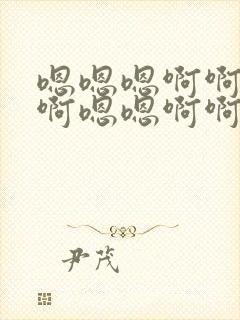 嗯嗯嗯啊啊
啊嗯嗯啊啊
尹茂